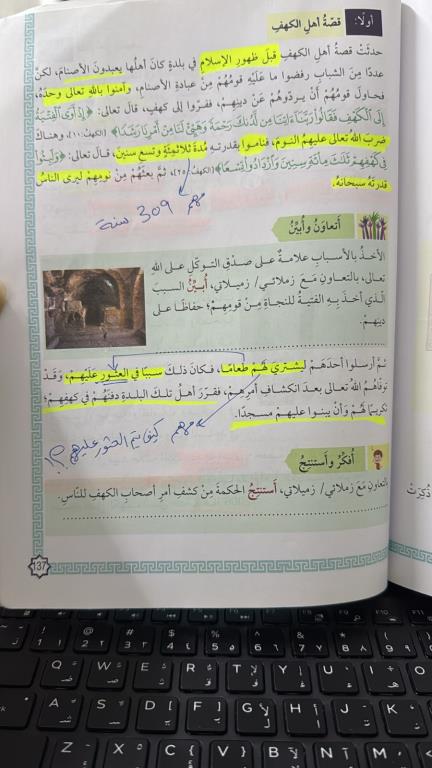 أولًا: قصّة أهل الكهف
حدثَتْ قصةُ أهلِ الكهفِ قبلَ ظهورِ الإسلامِ في بلدةٍ كانَ أهلُها يعبدونَ الأصنامَ، لكنَّ
عددًا مِنَ الشبابِ رفضوا ما عَلَيْهِ قومُهُمْ مِنْ عبادةِ الأصنامِ، وآمنوا باللهِ تعالى وحدَهُ،
فحاولَ قومُهُمْ أَنْ يردّوهُمْ عَنْ دينِهِمْ، ففرّوا إلى كهفٍ، قالَ تعالى: ﴿إِذْ أَوَى ٱلْفِتْيَةُ
إِلَى ٱلْكَهْفِ فَقَالُوا۟ رَبَّنَآ ءَاتِنَا مِن لَّدُنكَ رَحْمَةً وَهَيِّئْ لَنَا مِنْ أَمْرِنَا رَشَدًا﴾ (الكهف: ١٠)، وهناكَ
ضربَ اللهُ تعالى عليهِمُ النومَ، فناموا بقدرتِهِ مُدةَ ثلاثِمئةٍ وتسعِ سنينَ، قالَ تعالى: ﴿وَلَبِثُوا۟
فِى كَهْفِهِمْ ثَلَٰثَ مِا۟ئَةٍ سِنِينَ وَٱزْدَادُوا۟ تِسْعًا﴾ (الكهف: ٢٥)، ثمَّ بعثَهُمْ مِنْ نومِهِمْ ليرى الناسُ
قدرتَهُ سبحانَهُ.
مهم 309 سنة
أتعاوَنُ وأُبَيِّنُ
الأخذُ بالأسبابِ علامةٌ على صدْقِ التوكّلِ على اللهِ
تعالى، بالتعاونِ مَعَ زملائي/ زميلاتي، أُبيِّنُ السببَ
الّذي أخذَ بِهِ الفتيةُ للنجاةِ مِنْ قومِهِمْ؛ حفاظًا على
دينِهِمْ.
ثمَّ أرسلوا أحدَهُمْ ليشتريَ لَهُمْ طعامًا، فكانَ ذلكَ سببًا في العثورِ عَلَيْهِمْ، وَقَدْ
توفّاهُمُ اللهُ تعالى بعدَ انكشافِ أمرِهِمْ، فقرّرَ أهلُ تلكَ البلدةِ دفنَهُمْ في كهفِهِمْ؛
تكريمًا لَهُمْ وَأَنْ يبنوا عليهِمْ مسجدًا.
مهم كيف تم العثور عليهم؟!
أُفكّرُ وأستنتِجُ
بالتعاونِ مَعَ زملائي/ زميلاتي، أستنتِجُ الحكمةَ مِنْ كشفِ أمرِ أصحابِ الكهفِ للنّاسِ.
137
ذُكِرَتْ
F7 F8 F9 F10
! 1 ١
@ 2 ٢
# 3 ٣
$ 4 ٤
% 5 ٥
^ 6 ٦
& 7 ٧
* 8 ٨
( 9 ٩
Q W E R T Y U I O
A S D F G H J K
Z X C V B N M